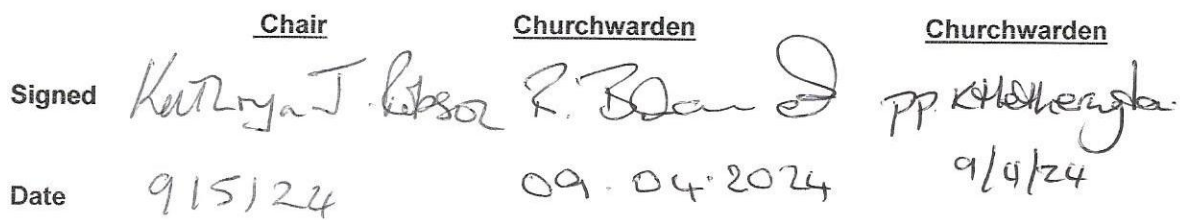 Chair Churchwarden Churchwarden
Signed Kathryn J. R. pp. K Hetherington
Date 9/5/24 09.04.2024 9/4/24